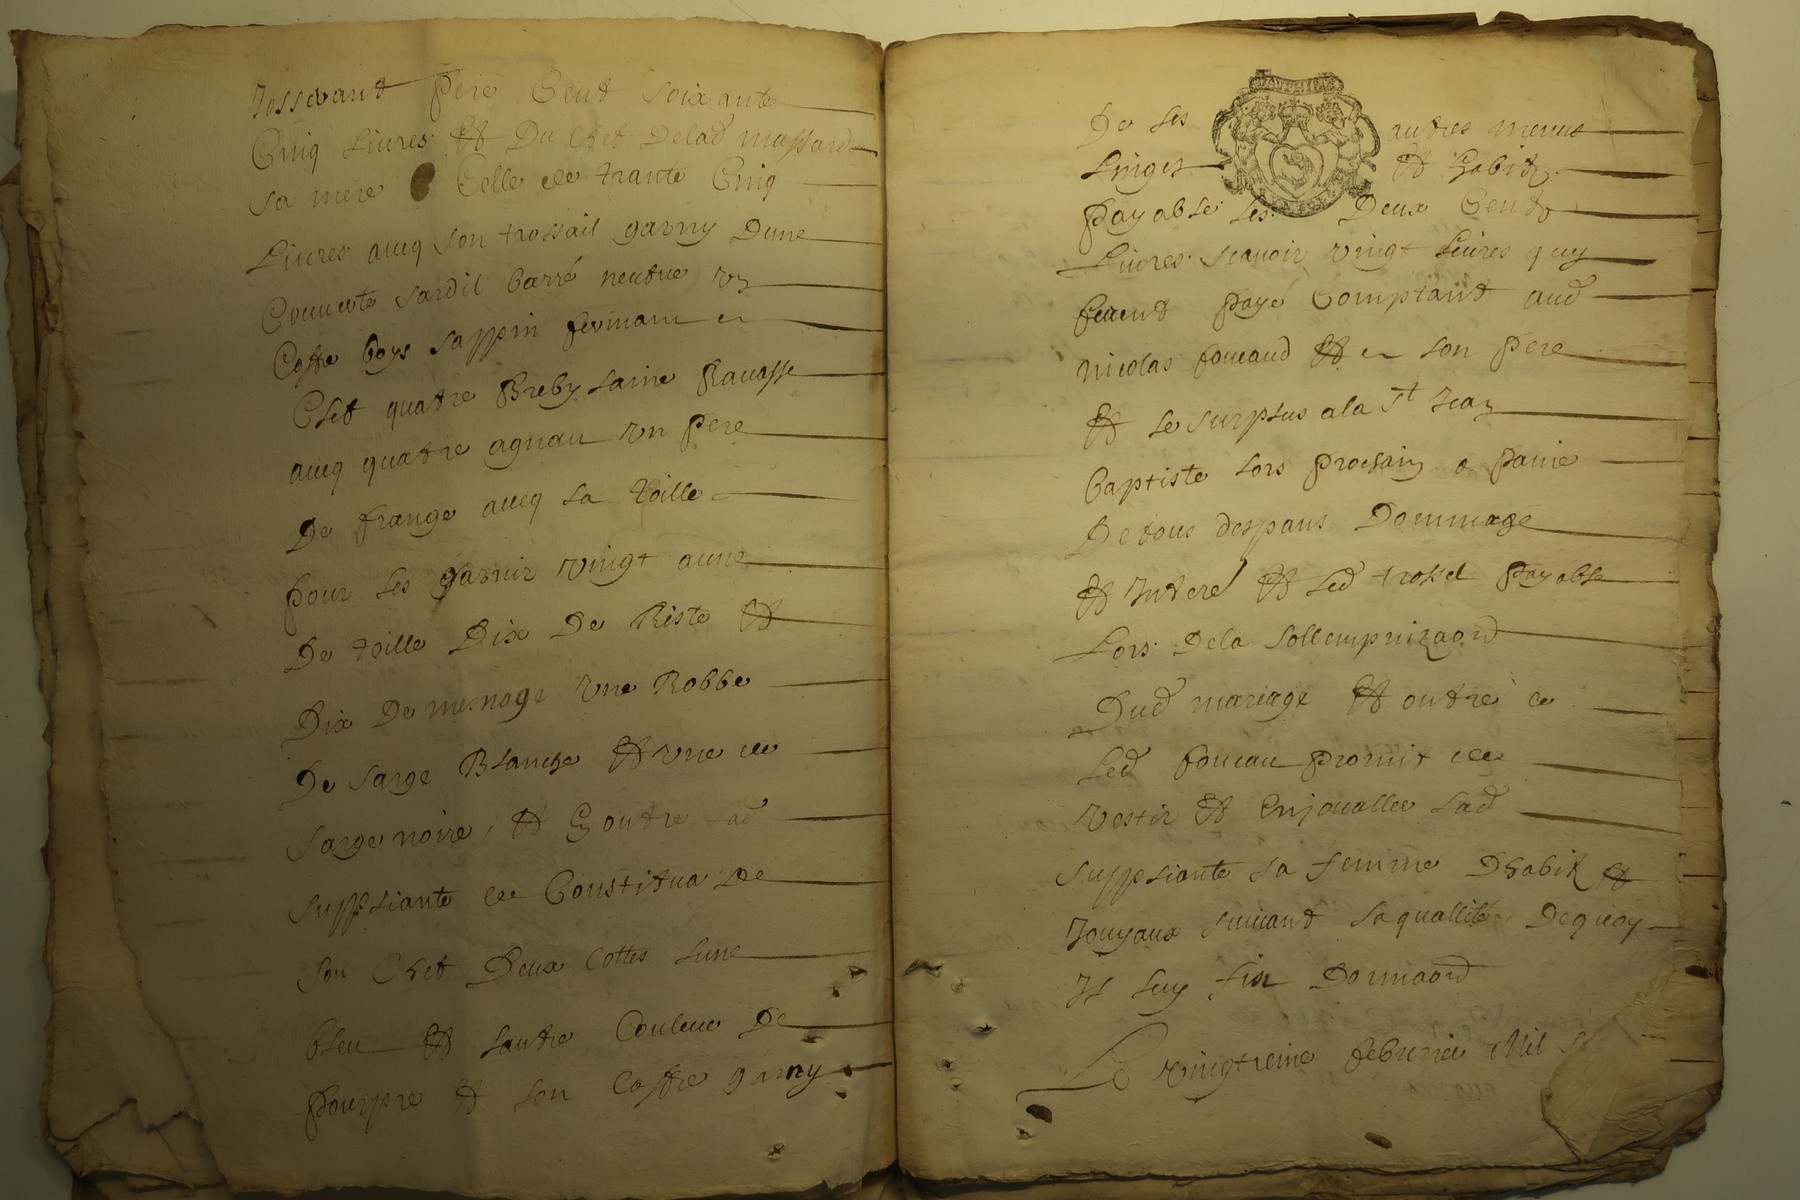 Jossevant Pere Cent soixante
Cinq Liures Et Du Chet Delad massard
sa mere Celle de trante Cinq
Liures aucq son trossail garny Dune
Couuerte sardil barré neutue vn
Coffre boys sappin fermant en
Clet quatre Breby laine flauasse
aucq quatre agnau vn Pere
De frange aucq la toille
pour les garnir vingt aune
De toille Dix De Riste Et
Dix De mesnage vne Robbe
De sarge Blanche Et vne de
sarge noire, Et En outre Lad
suppliante se Constitua De
son Chet Deux Cottes lune
bleu Et lautre Couleur De
pourpre Et son Coffre garny
De ses autres menus
Linges Et habitz
payable les Deux Centz
Liures scauoir vingt Liures quy
feuent payé Comptant aud
nicolas foucaud Et en son Pere
Et le surplus a la St Jean
baptiste lors prochain a paine
De tous despans Dommage
Et Interé Et Led trossel payable
Lors Dela sollempnizaon
Dud mariage Et outre ce
Led foucau promit de
vestir Et Enjoualler Lad
suppliante sa femme Dhabit Et
Jouyaux suiuant sa quallité, Dequoy
Il luy fit Donnaon
Le vingtreime feburier Mil